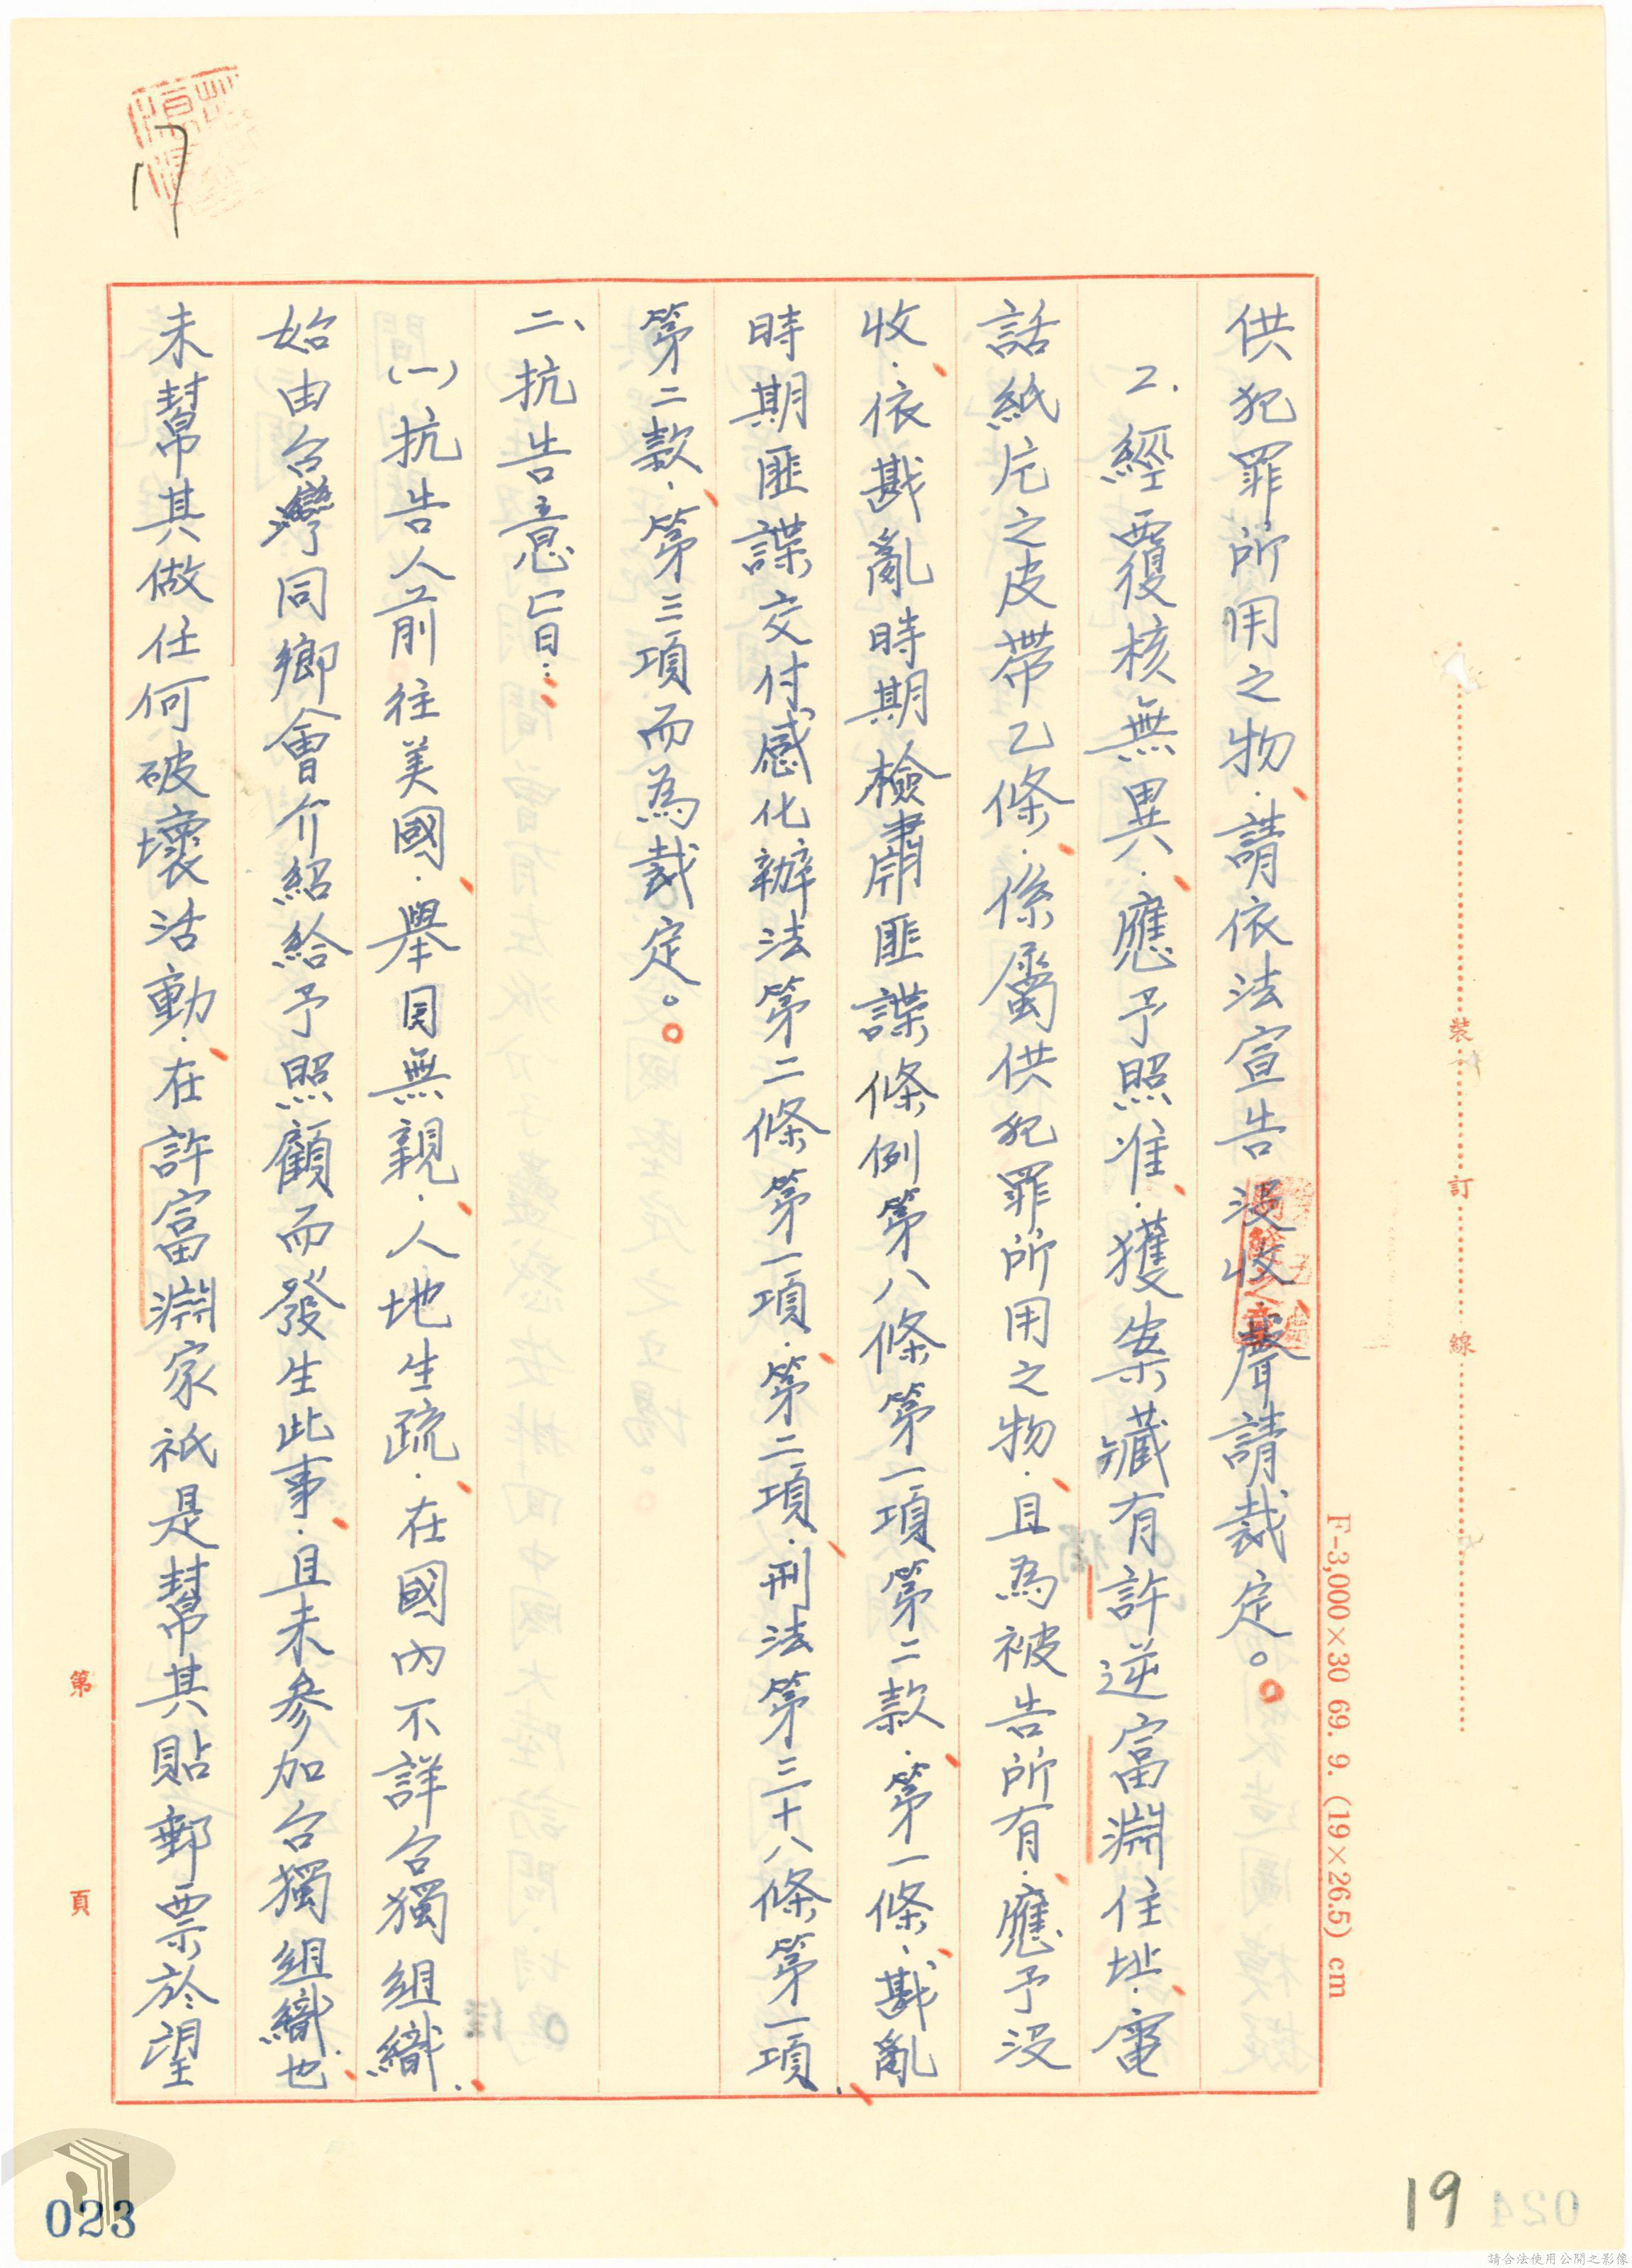 供犯罪所用之物、請依法宣告沒收、聲請裁定。
2.經覆核無異、應予照准、獲案藏有許逆富淵住址、電
話紙片之皮帶乙條、係屬供犯罪所用之物、且為被告所有、應予沒
收、依戡亂時期檢肅匪諜條例第八條第一項第二款、第一條、戡亂
時期匪諜交付感化辦法第二條第一項、第二項、刑法第三十八條第一項、
第二款、第三項而為裁定。
二、抗告意旨:
(一)抗告人前往美國、舉目無親、人地生疏、在國內不詳台獨組織、
始由台灣同鄉會介紹給予照顧而發生此事、且未參加台獨組織、也
未幫其做任何破壞活動、在許富淵家祇是幫其貼郵票於望
裝 訂 線
F-3,000×30 69. 9. (19×26.5) cm
第 頁
17
19
023
024
請合法使用公開之影像